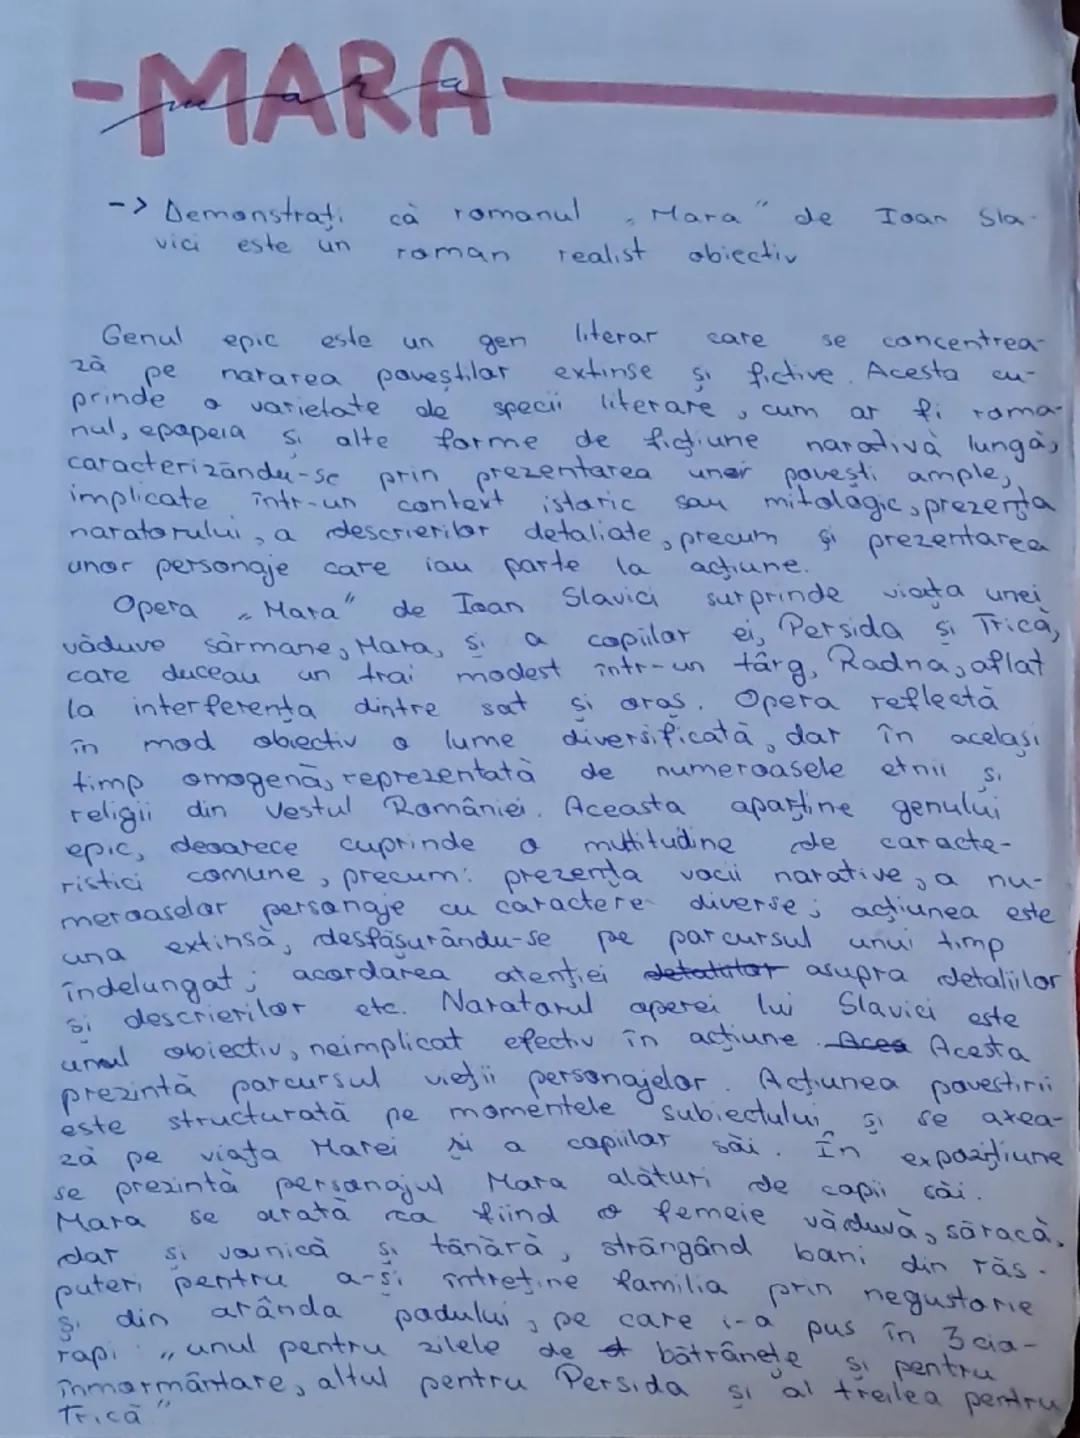 -MARA
mara
-> Demonstrați că romanul „Mara" de Ioan Sla-
vici este un roman realist obiectiv
Genul epic este un gen literar care se concentrea-
ză pe nararea poveștilor extinse și fictive. Acesta cu-
prinde o varietate de specii literare, cum ar fi roma-
nul, epopeia și alte forme de ficțiune narativă lungă,
caracterizându-se prin prezentarea unor povești ample,
implicate într-un context istoric sau mitologic, prezența
naratorului, a descrierilor detaliate, precum și prezentarea
unor personaje care iau parte la acțiune.
Opera „Mara" de Ioan Slavici surprinde viața unei
văduve sărmane, Mara, și a copiilor ei, Persida și Trică,
care duceau un trai modest într-un târg, Radna, aflat
la interferența dintre sat și oraș. Opera reflectă
în mod obiectiv o lume diversificată, dar în același
timp omogenă, reprezentată de numeroasele etnii și
religii din Vestul României. Aceasta aparține genului
epic, deoarece cuprinde o multitudine de caracte-
ristici comune, precum: prezența vocii narative, a nu-
meroaselor personaje cu caractere diverse; acțiunea este
una extinsă, desfășurându-se pe parcursul unui timp
îndelungat; acordarea atenției detaliilor asupra detaliilor
și descrierilor etc. Naratorul operei lui Slavici este
unul obiectiv, neimplicat efectiv în acțiune. Acea Acesta
prezintă parcursul vieții personajelor. Acțiunea povestirii
este structurată pe momentele subiectului și se axea-
ză pe viața Marei și a copiilor săi. În expozițiune
se prezintă personajul Mara alături de copii săi.
Mara se arată ca fiind o femeie văduvă, săracă,
dar și voinică și tânără, strângând bani din răs-
puteri pentru a-și întreține familia prin negustorie
și din arânda podului, pe care i-a pus în 3 cio-
rapi: „unul pentru zilele de bătrânețe și pentru
înmormântare, altul pentru Persida și al treilea pentru
Trică"